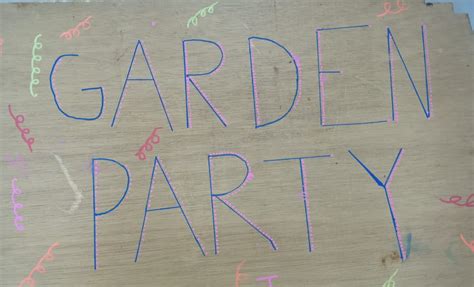 GARDEN
PARTY